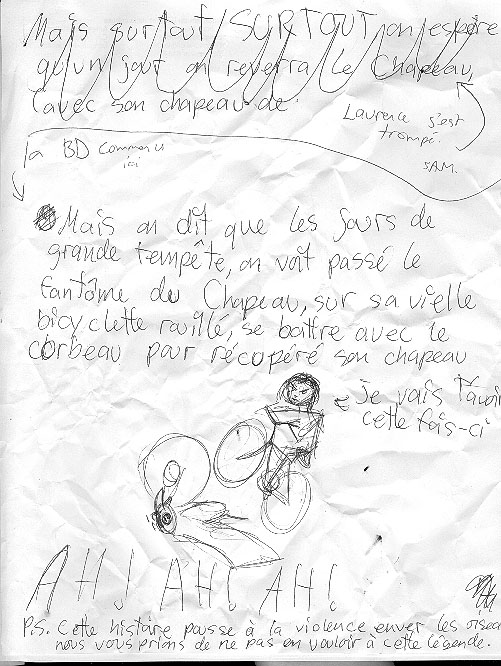 Mais surtout SURTOUT on espère
qu'un jour on reverra le Chapeau,
(avec son chapeau de
Laurence s'est
trompé.
SAM.
la BD commence
ici
Mais on dit que les jours de
grande tempête, on voit passé le
fantôme du Chapeau, sur sa vielle
bicyclette rouillé, se battre avec le
corbeau pour récupéré son chapeau
Je vais t'avoir
cette fois-ci
AH! AH! AH!
P.S. Cette histoire pousse à la violence enver les
nous vous prions de ne pas en vouloir à cette légende.